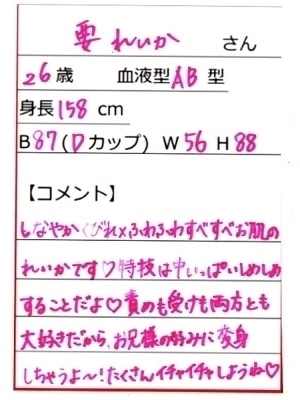 要 れいか さん
26歳 血液型 AB 型
身長 158 cm
B 87 (D カップ) W 56 H 88
【コメント】
しなやかくびれ×ふわふわすべすべお肌の
れいかです♡特技は中いっぱいしめしめ
することだよ♡責めも受けも両方とも
大好きだから、お兄様の好みに変身
しちゃうよ～!たくさんイチャイチャしようね♡